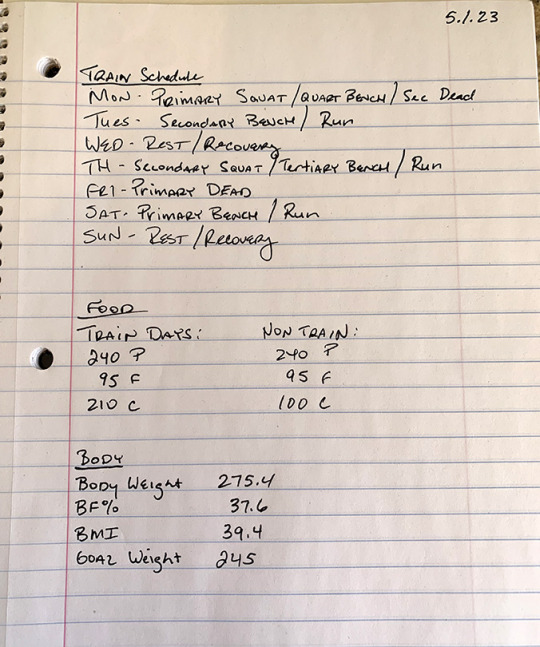 5.1.23
TRAIN Schedule
MON - PRIMARY SQUAT / QUART BENCH / Sec Dead
Tues - SECONDARY BENCH / Run
WED - REST / RECOVERY
TH - SECONDARY SQUAT / TERTIARY BENCH / Run
FRI - PRIMARY DEAD
SAT - PRIMARY BENCH / Run
SUN - REST / RECOVERY
FOOD
TRAIN DAYS: NON TRAIN:
240 P 240 P
95 F 95 F
210 C 100 C
BODY
BODY WEIGHT 275.4
BF% 37.6
BMI 39.4
GOAL Weight 245